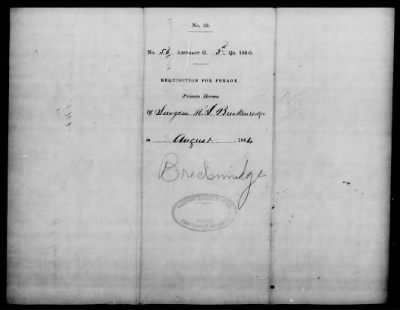 No. 33.
No. 55, Abstract G. 3d Qr. 1864.
REQUISITION FOR FORAGE.
Private Horses.
Of Surgeon R. S. Breckenridge
in August 1864
Breckinridge